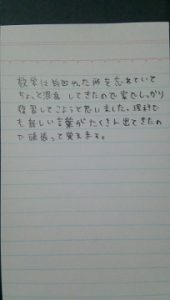 数学は前回やった所を忘れていて
ちょっと混乱してきたので家でしっかり
復習してこようと思いました。理科で
も難しい言葉がたくさん出てきたの
で頑張って覚えます。